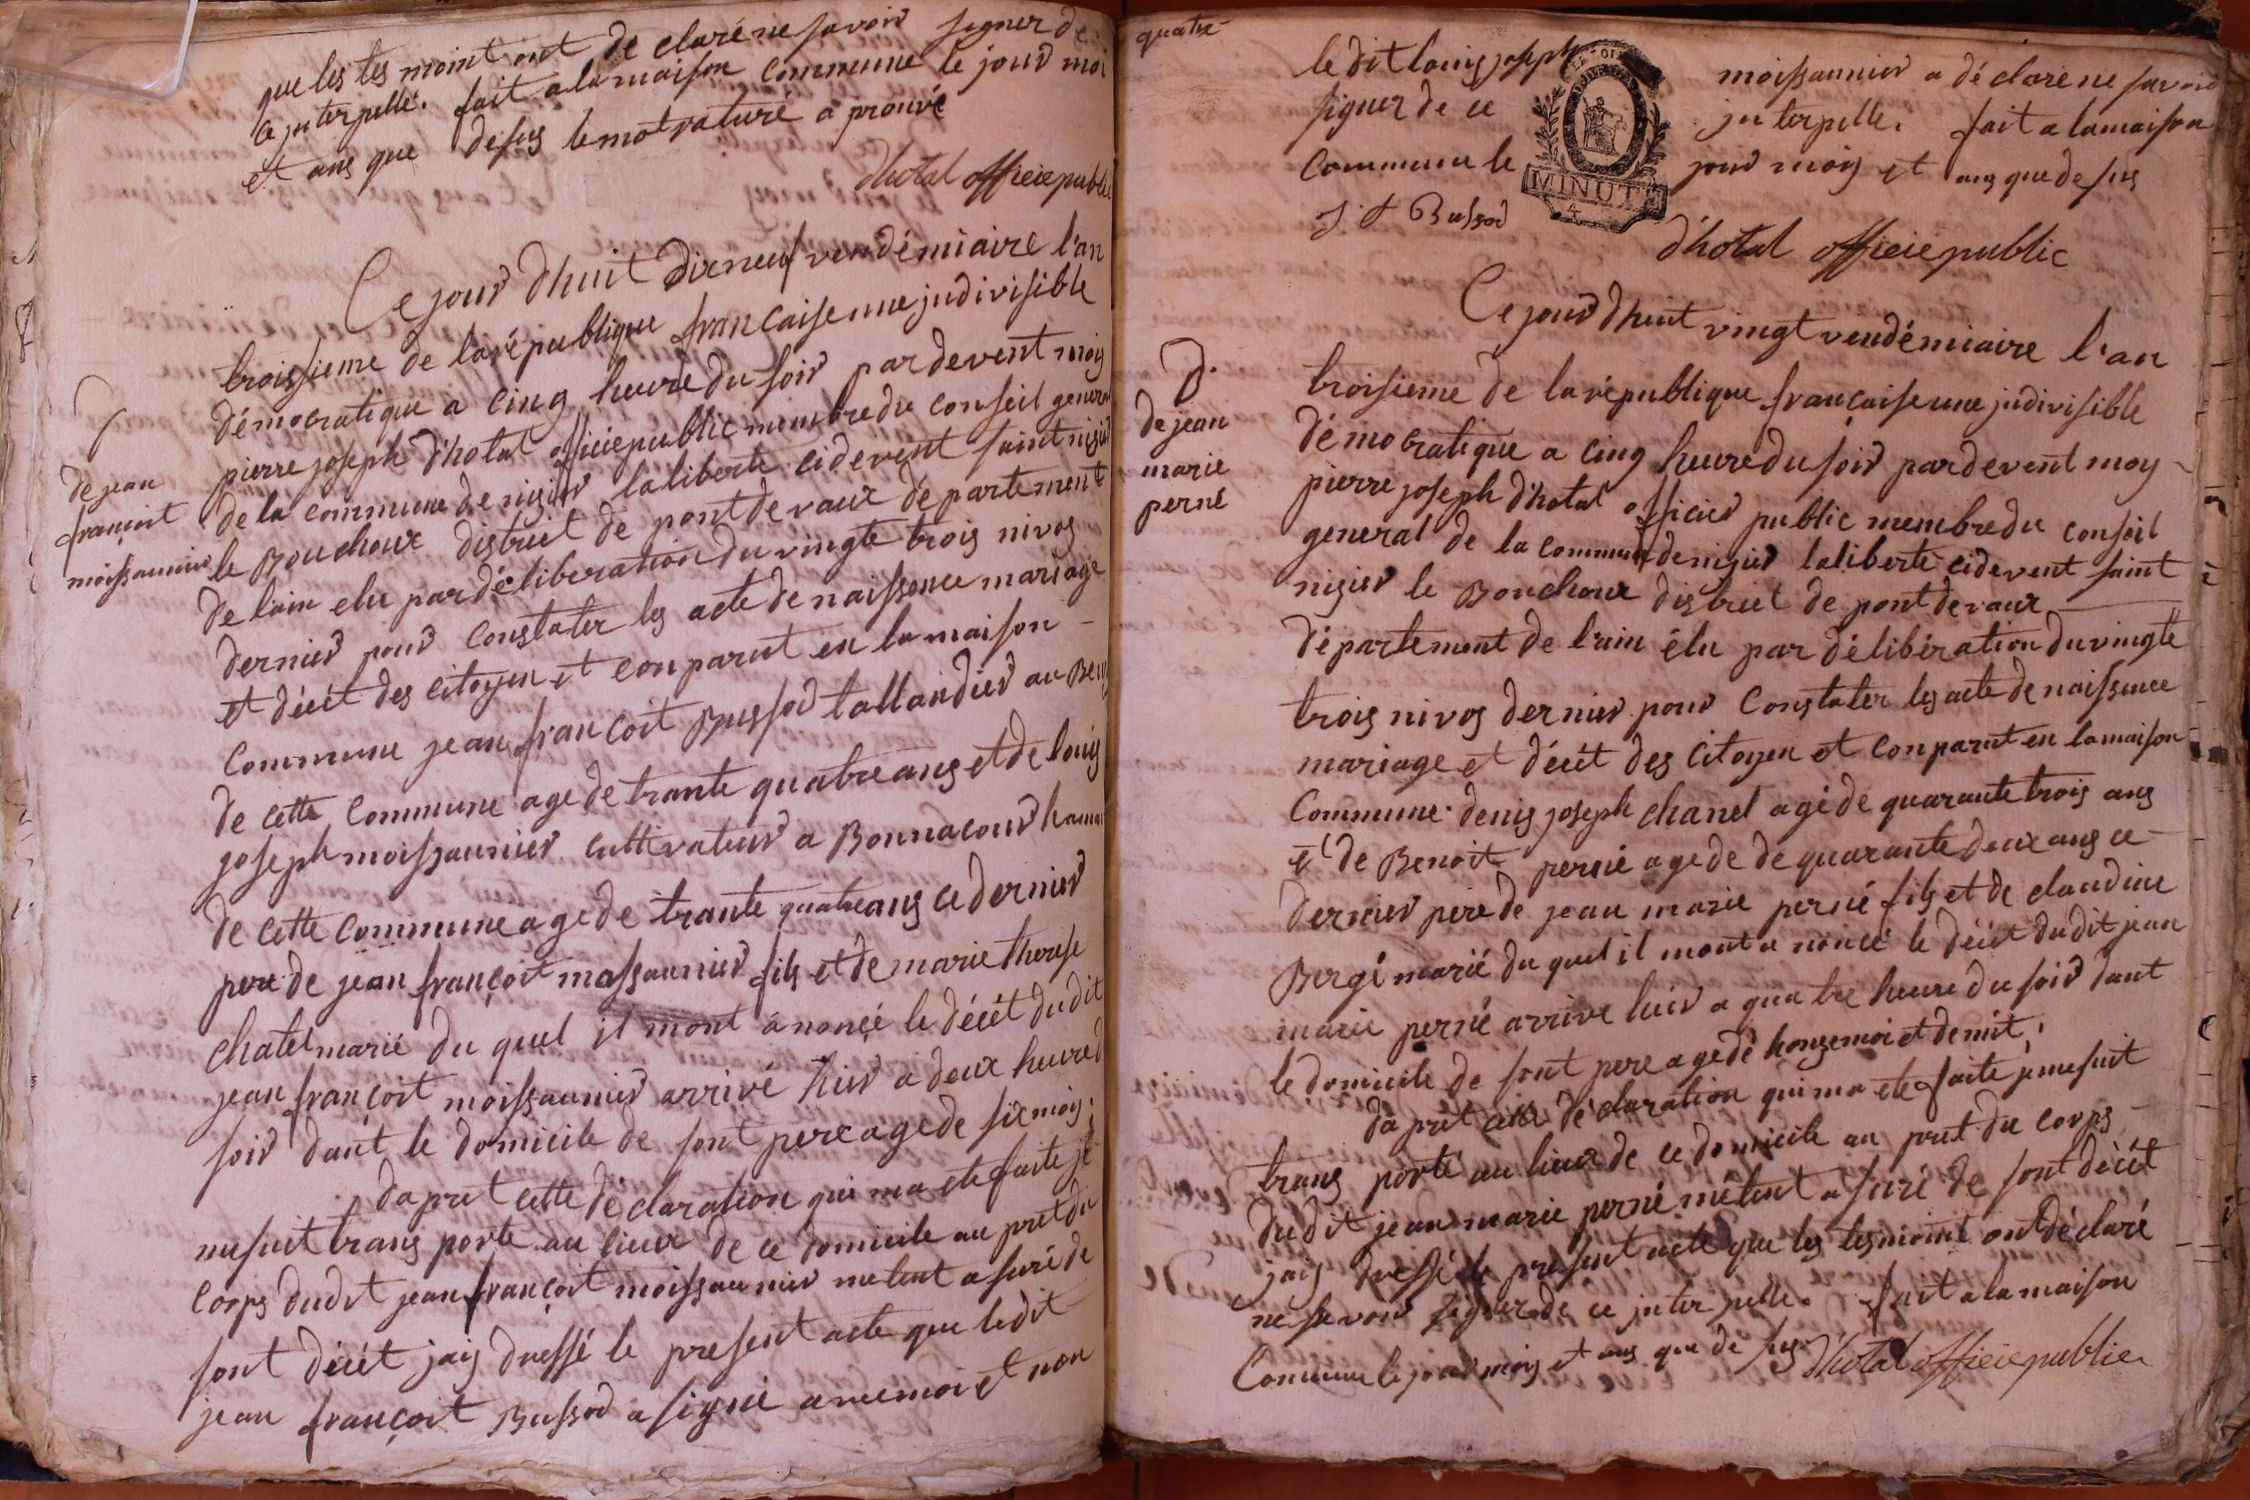 que les tes moint ont de claré ne savoir signer de
ce juterpellé. fait a la maison commune le jour moi
et ans que desus le mot raturé a prouvé
dhotal officiepublic
Ce jour dhuit dix neuf vendémiaire l'an
troissieme de la république francaise une judivisible
démocratique a cinq heure du soir par devent moy
pierre joseph d'hotal officiepublic membre du conseil general
de la commune de nisier la liberte cidevent saint nisier
le Bouchoux district de pont de vaux département
de lain elu par délibération du vingte trois nivos
dernier pour constater les acte de naissence mariage
et décét des citoyen et conparut en la maison
Commune jean françoit Bussod tallandier au
de cette commune age de trante quatre ans et de louis
joseph moissaunier cultivateur a Bonnacour
de cette commune age de trante quatre ans ce dernier
pere de jean françoit massaunier fils et de marie therese
chatel marié du quel il mont anoncé le décét dudit
jean françoit moissaunier arrivé hier a deux heure d
soir dant le domicile de sont pere age de six mois;
dapret cette déclaration qui ma ete faite je
me suit trans porte au lieux de ce domicile au pret du
corps dudit jean françoit moissaunier me tent a suré de
sont décét jais dressé le present acte que ledit
jean françoit Bussod a signé avec moi et non
de jean
françoit
moissaunier
quatre
le dit louis joseph moissaunier a déclaré ne savoir
signer de ce juterpelle. fait a la maison
Commune le jour mois et ans que de sus
MINUT
4
J. f Bussod
d'hotal officiepublic
Ce jour dhuit vingt vendémiaire l'an
troisieme de la république française une judivisible
démocratique a cinq heure du soir par devent moy
pierre joseph d'hotal officier public membre du conseil
general de la commune de nisier la liberté cidevent saint
nisier le Bouchoux district de pont de vaux
département de l'ain élu par délibération du vingte
trois nivos dernier pour Constater les acte de naissence
mariage et décét des citoyen et conparut en la maison
Commune denis joseph chanel agé de quarante trois ans
et de Benoit perné age de de quarante deux ans ce
dernier pere de jean marie perné fils et de claudine
Bergé marié du quel il mont a noncé le décét dudit jean
marie perné arrive hier a quatre heure du soir dant
le domicile de sont pere age de honze moi et demit;
da pret cette déclaration qui ma ete faite je me suit
trans porté au lieux de ce domicile au pret du corps
dudit jean marie perné métent a suré de sont décét
jais dressé le present acte que les tesmoint ont déclaré
ne savoir signer de ce juter pelle. fait a la maison
Commune le jour mois et ans que de sus d'hotal officiepublic
D.
de jean
marie
perné